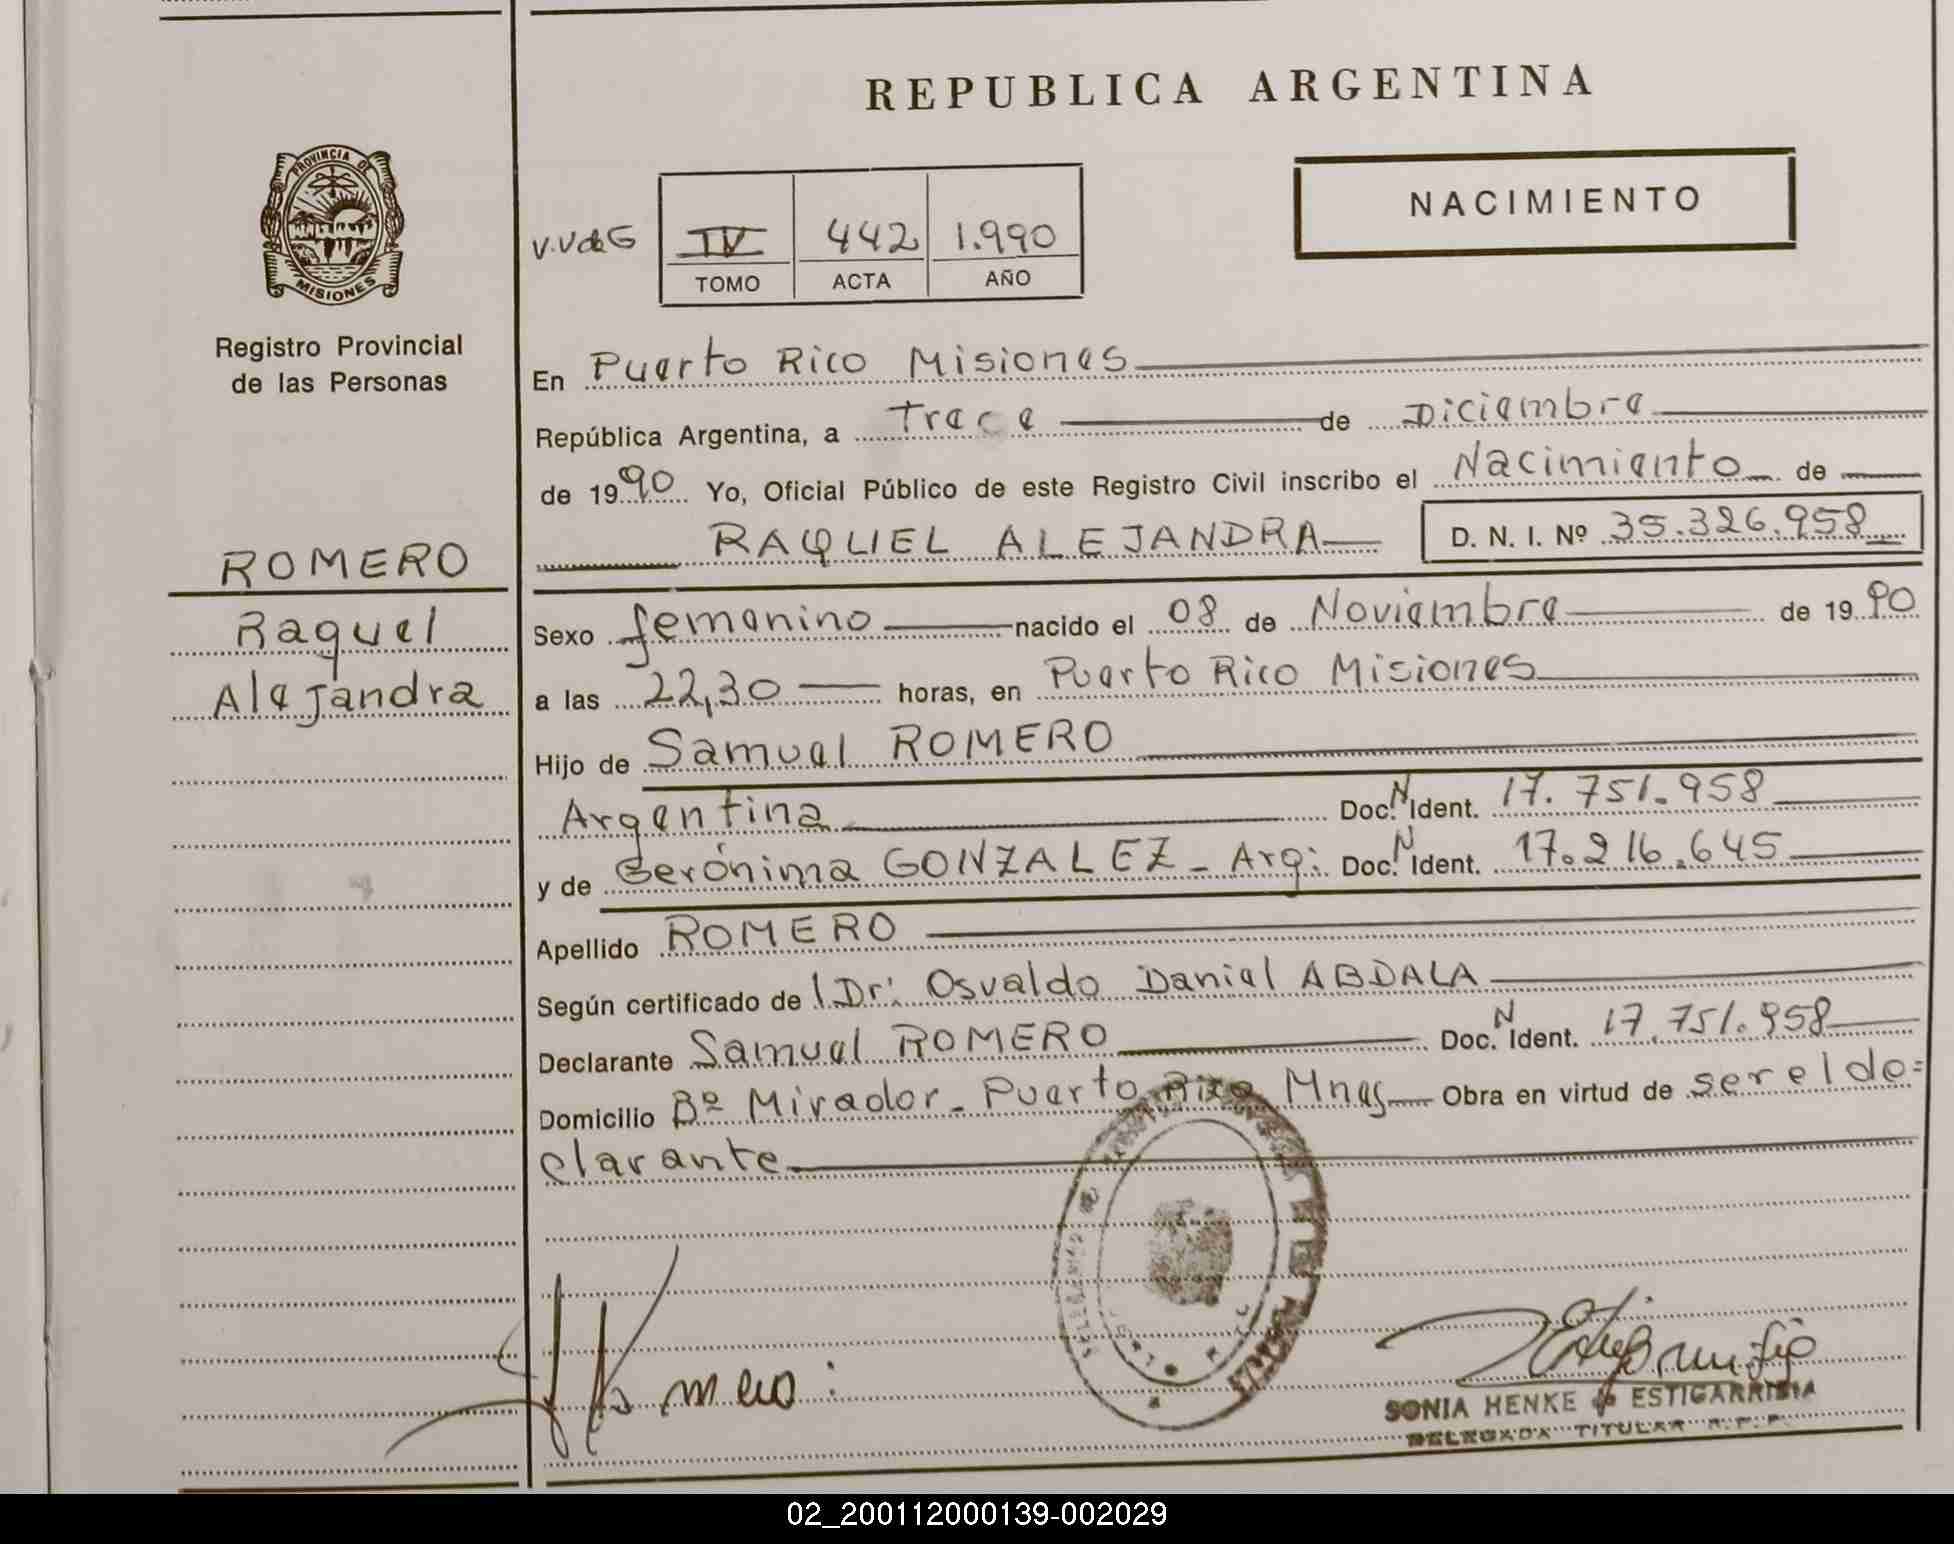 REPUBLICA ARGENTINA
PROVINCIA DE
MISIONES
Registro Provincial
de las Personas
NACIMIENTO
V.V de G
IV 442 1.990
TOMO ACTA AÑO
ROMERO
Raquel
Alejandra
En Puerto Rico Misiones
República Argentina, a Trece de Diciembre
de 1990 Yo, Oficial Público de este Registro Civil inscribo el Nacimiento de
RAQUEL ALEJANDRA D. N. I. Nº 35.326.958
Sexo femenino nacido el 08 de Noviembre de 1990
a las 22,30 horas, en Puerto Rico Misiones
Hijo de Samuel ROMERO
Argentina Doc. N Ident. 17.751.958
y de Gerónima GONZALEZ - Arg: Doc. N Ident. 17.216.645
Apellido ROMERO
Según certificado de Dr: Osvaldo Daniel ABDALA
Declarante Samuel ROMERO Doc. N Ident. 17.751.958
Domicilio Bº Mirador - Puerto Rico Mnes Obra en virtud de ser el de=
clarante
Romero
SONIA HENKE de ESTIGARRIBIA
DELEGADA TITULAR R.P.P.
02_200112000139-002029